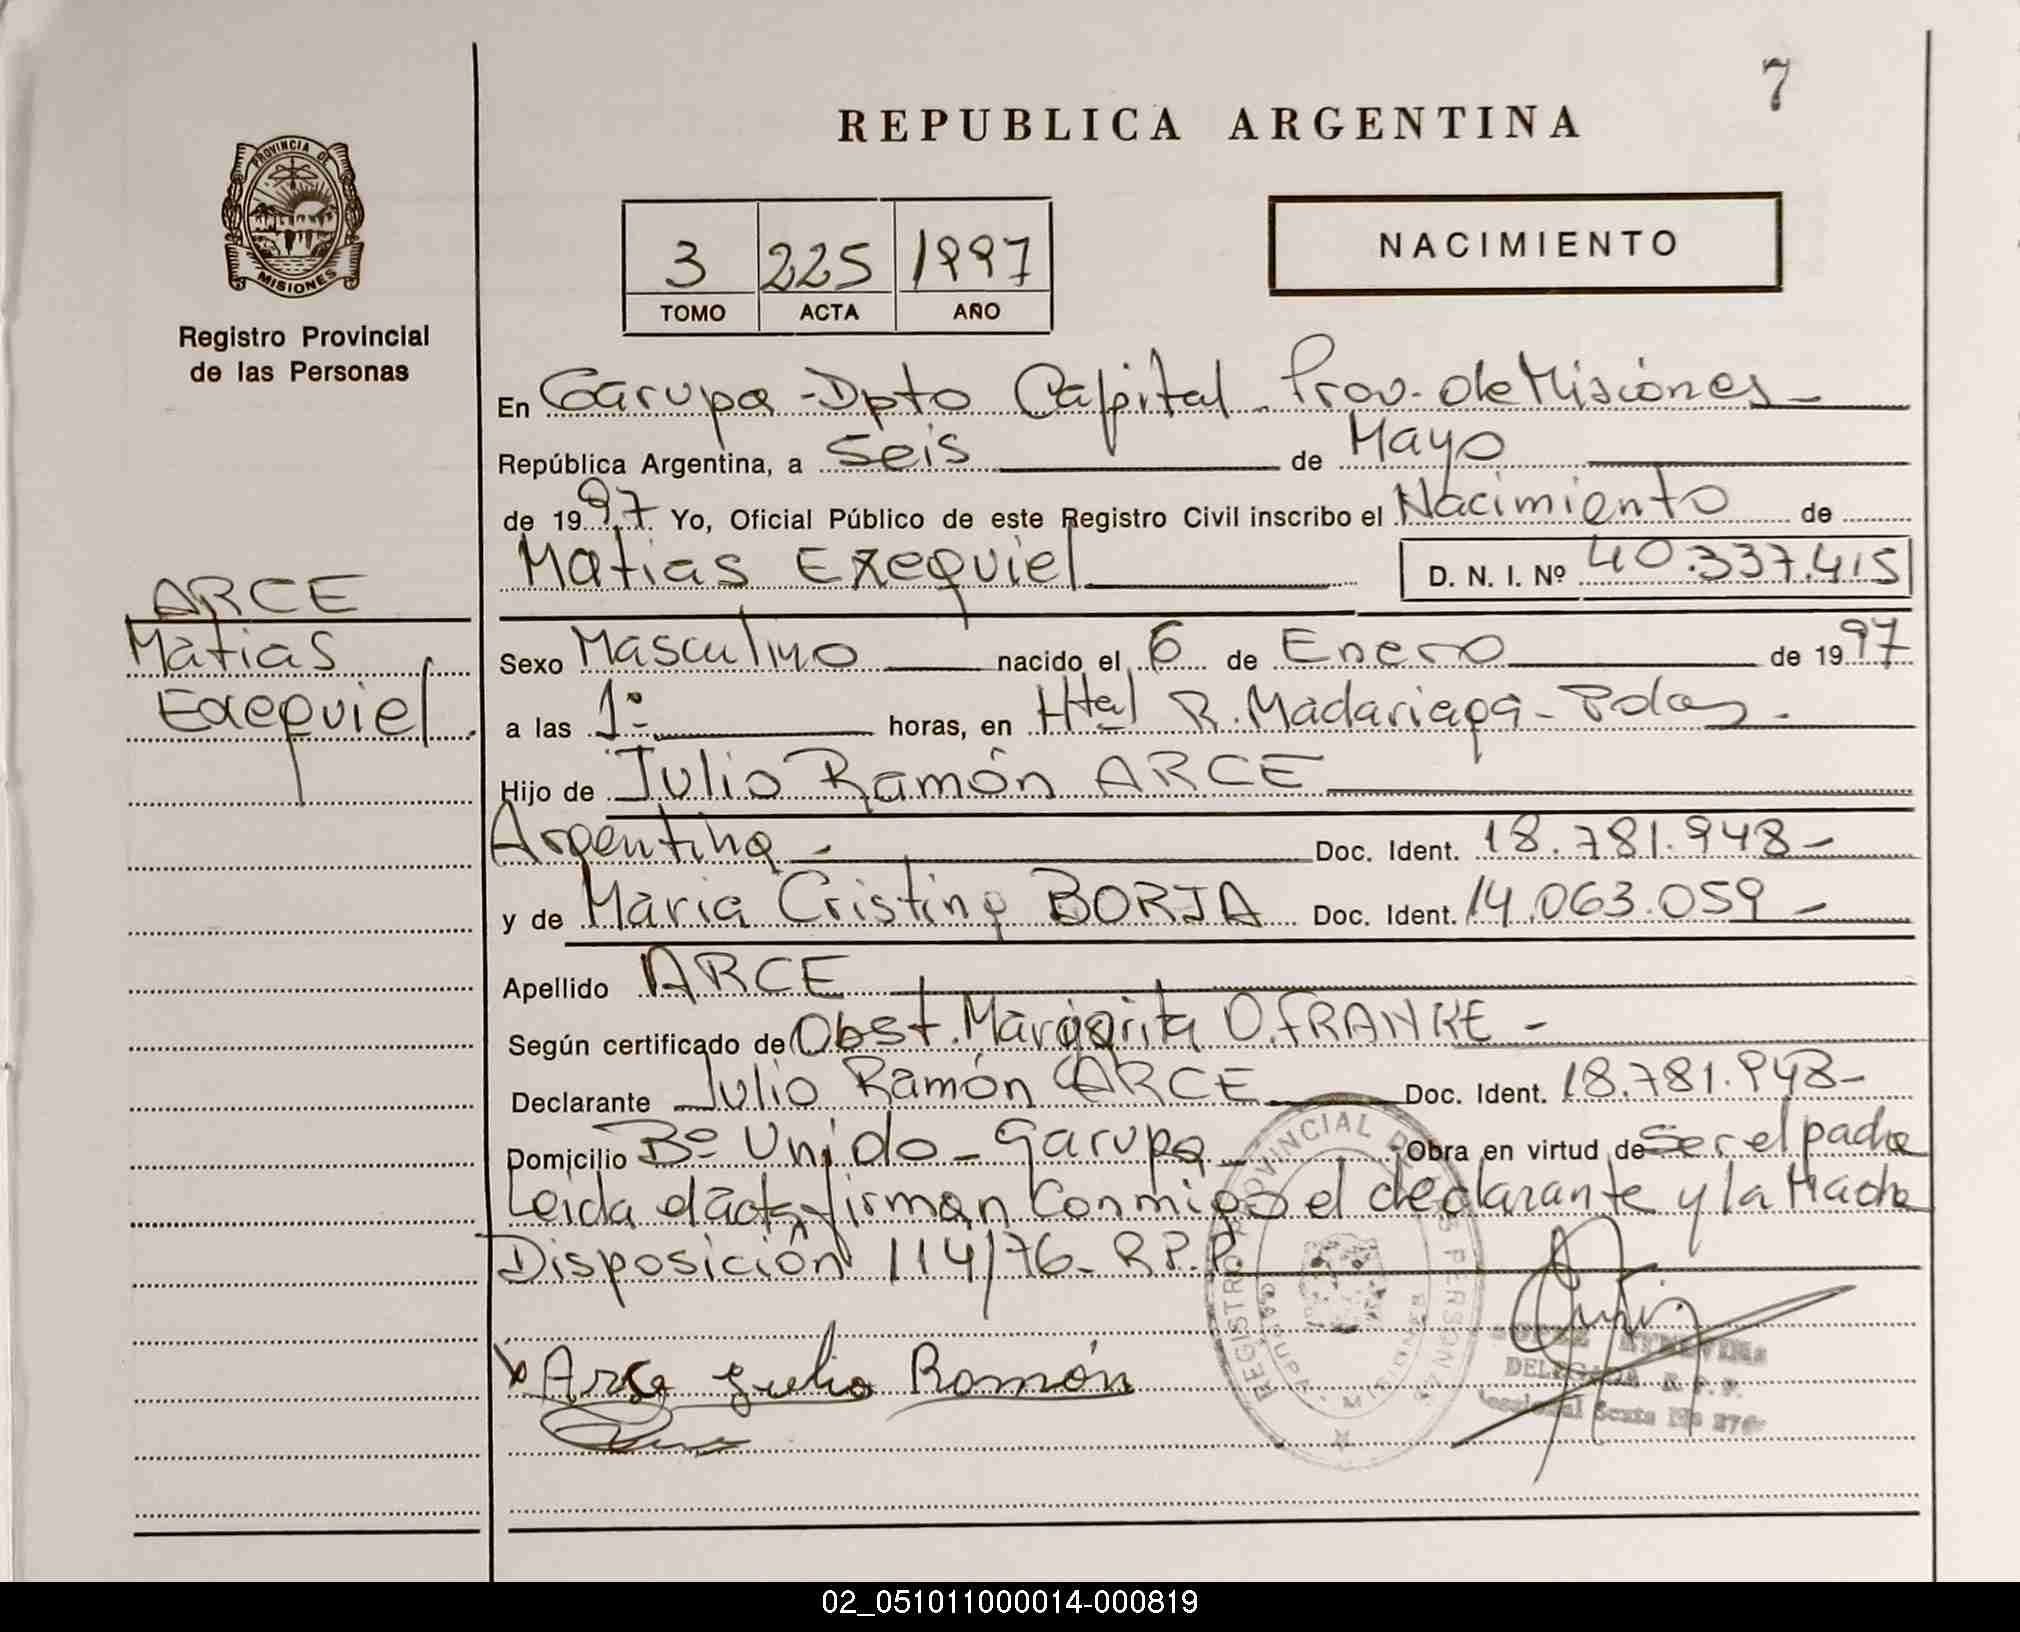 7
REPUBLICA ARGENTINA
PROVINCIA DE
MISIONES
Registro Provincial
de las Personas
3 225 1997
TOMO ACTA AÑO
NACIMIENTO
En Garupa - Dpto Capital - Prov. de Misiones -
República Argentina, a seis de Mayo
de 1997 Yo, Oficial Público de este Registro Civil inscribo el Nacimiento de
Matias Exequiel D. N. I. Nº 40.337.415
ARCE
Matias
Exequiel.
Sexo Masculino nacido el 6 de Enero de 1997
a las 1º horas, en Htal R. Madariaga - Pdas -
Hijo de Julio Ramón ARCE
Argentina - Doc. Ident. 18.781.948 -
y de Maria Cristina BORJA Doc. Ident. 14.063.059 -
Apellido ARCE
Según certificado de Obst. Margarita O. FRANKE -
Declarante Julio Ramón ARCE Doc. Ident. 18.781.948 -
Domicilio Bº Unido - Garupa - Obra en virtud de ser el padre
Leida el acta firman conmigo el declarante y la Madre
Disposición 114/76 - R.P.P.
REGISTRO PROVINCIAL DE LAS PERSONAS
GARUPA - MISIONES
Arce Julio Ramón
DELEGADA R.P.P.
02_051011000014-000819